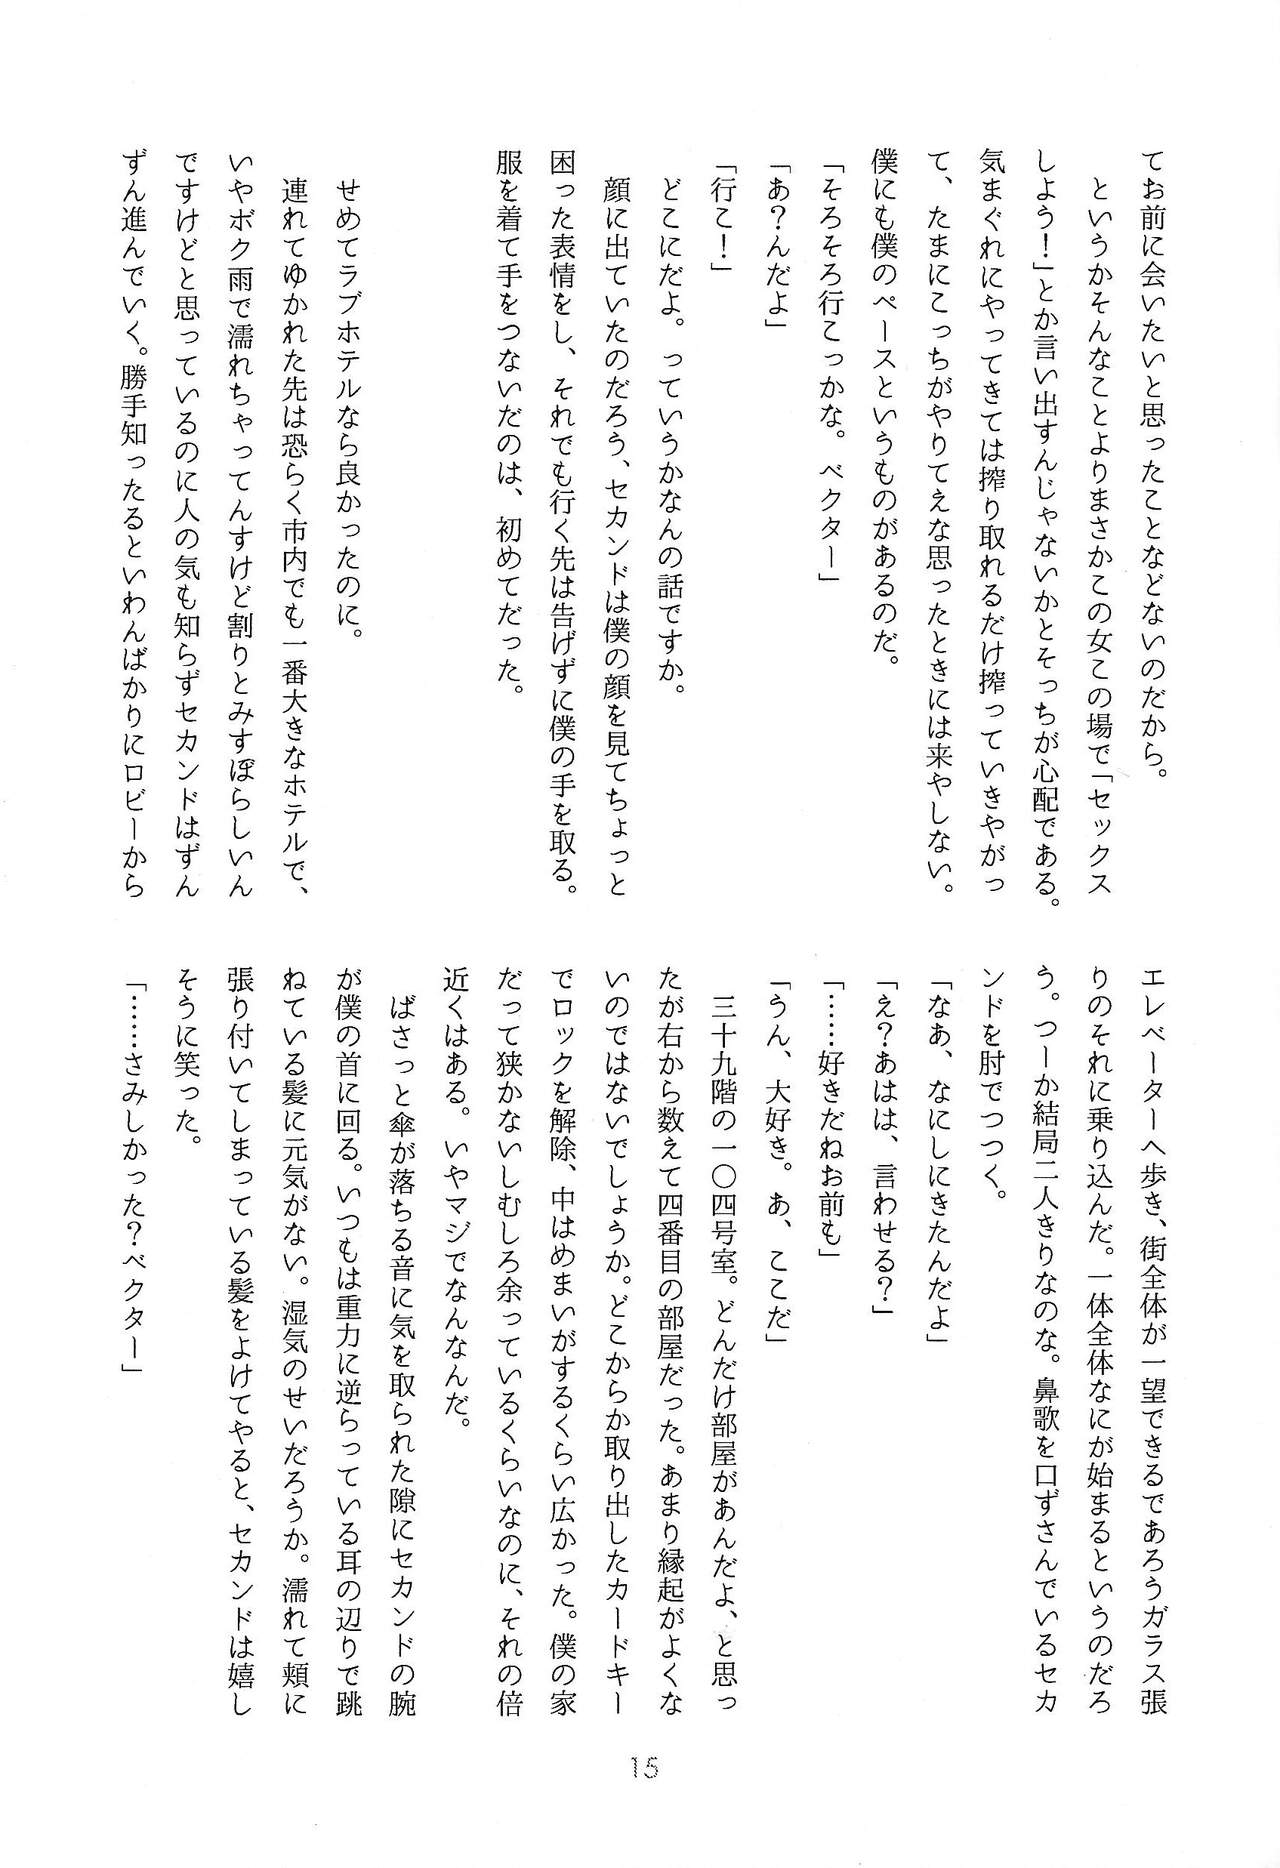 てお前に会いたいと思ったことなどないのだから。
というかそんなことよりまさかこの女この場で「セックス
しよう！」とか言い出すんじゃないかとそっちが心配である。
気まぐれにやってきては搾り取れるだけ搾っていきやがっ
て、たまにこっちがやりてえな思ったときには来やしない。
僕にも僕のペースというものがあるのだ。
「そろそろ行こっかな。ベクター」
「あ？んだよ」
「行こ！」
どこにだよ。っていうかなんの話ですか。
顔に出ていたのだろう、セカンドは僕の顔を見てちょっと
困った表情をし、それでも行く先は告げずに僕の手を取る。
服を着て手をつないだのは、初めてだった。
せめてラブホテルなら良かったのに。
連れてゆかれた先は恐らく市内でも一番大きなホテルで、
いやボク雨で濡れちゃってんすけど割りとみすぼらしいん
ですけどと思っているのに人の気も知らずセカンドはずん
ずん進んでいく。勝手知ったるといわんばかりにロビーから
エレベーターへ歩き、街全体が一望できるであろうガラス張
りのそれに乗り込んだ。一体全体なにが始まるというのだろ
う。つーか結局二人きりなのな。鼻歌を口ずさんでいるセカ
ンドを肘でつつく。
「なあ、なにしにきたんだよ」
「え？あはは、言わせる？」
「……好きだねお前も」
「うん、大好き。あ、ここだ」
三十九階の一〇四号室。どんだけ部屋があんだよ、と思っ
たが右から数えて四番目の部屋だった。あまり縁起がよくな
いのではないでしょうか。どこからか取り出したカードキー
でロックを解除、中はめまいがするくらい広かった。僕の家
だって狭かないしむしろ余っているくらいなのに、それの倍
近くはある。いやマジでなんなんだ。
ばさっと傘が落ちる音に気を取られた隙にセカンドの腕
が僕の首に回る。いつもは重力に逆らっている耳の辺りで跳
ねている髪に元気がない。湿気のせいだろうか。濡れて頬に
張り付いてしまっている髪をよけてやると、セカンドは嬉し
そうに笑った。
「……さみしかった？ベクター」
15